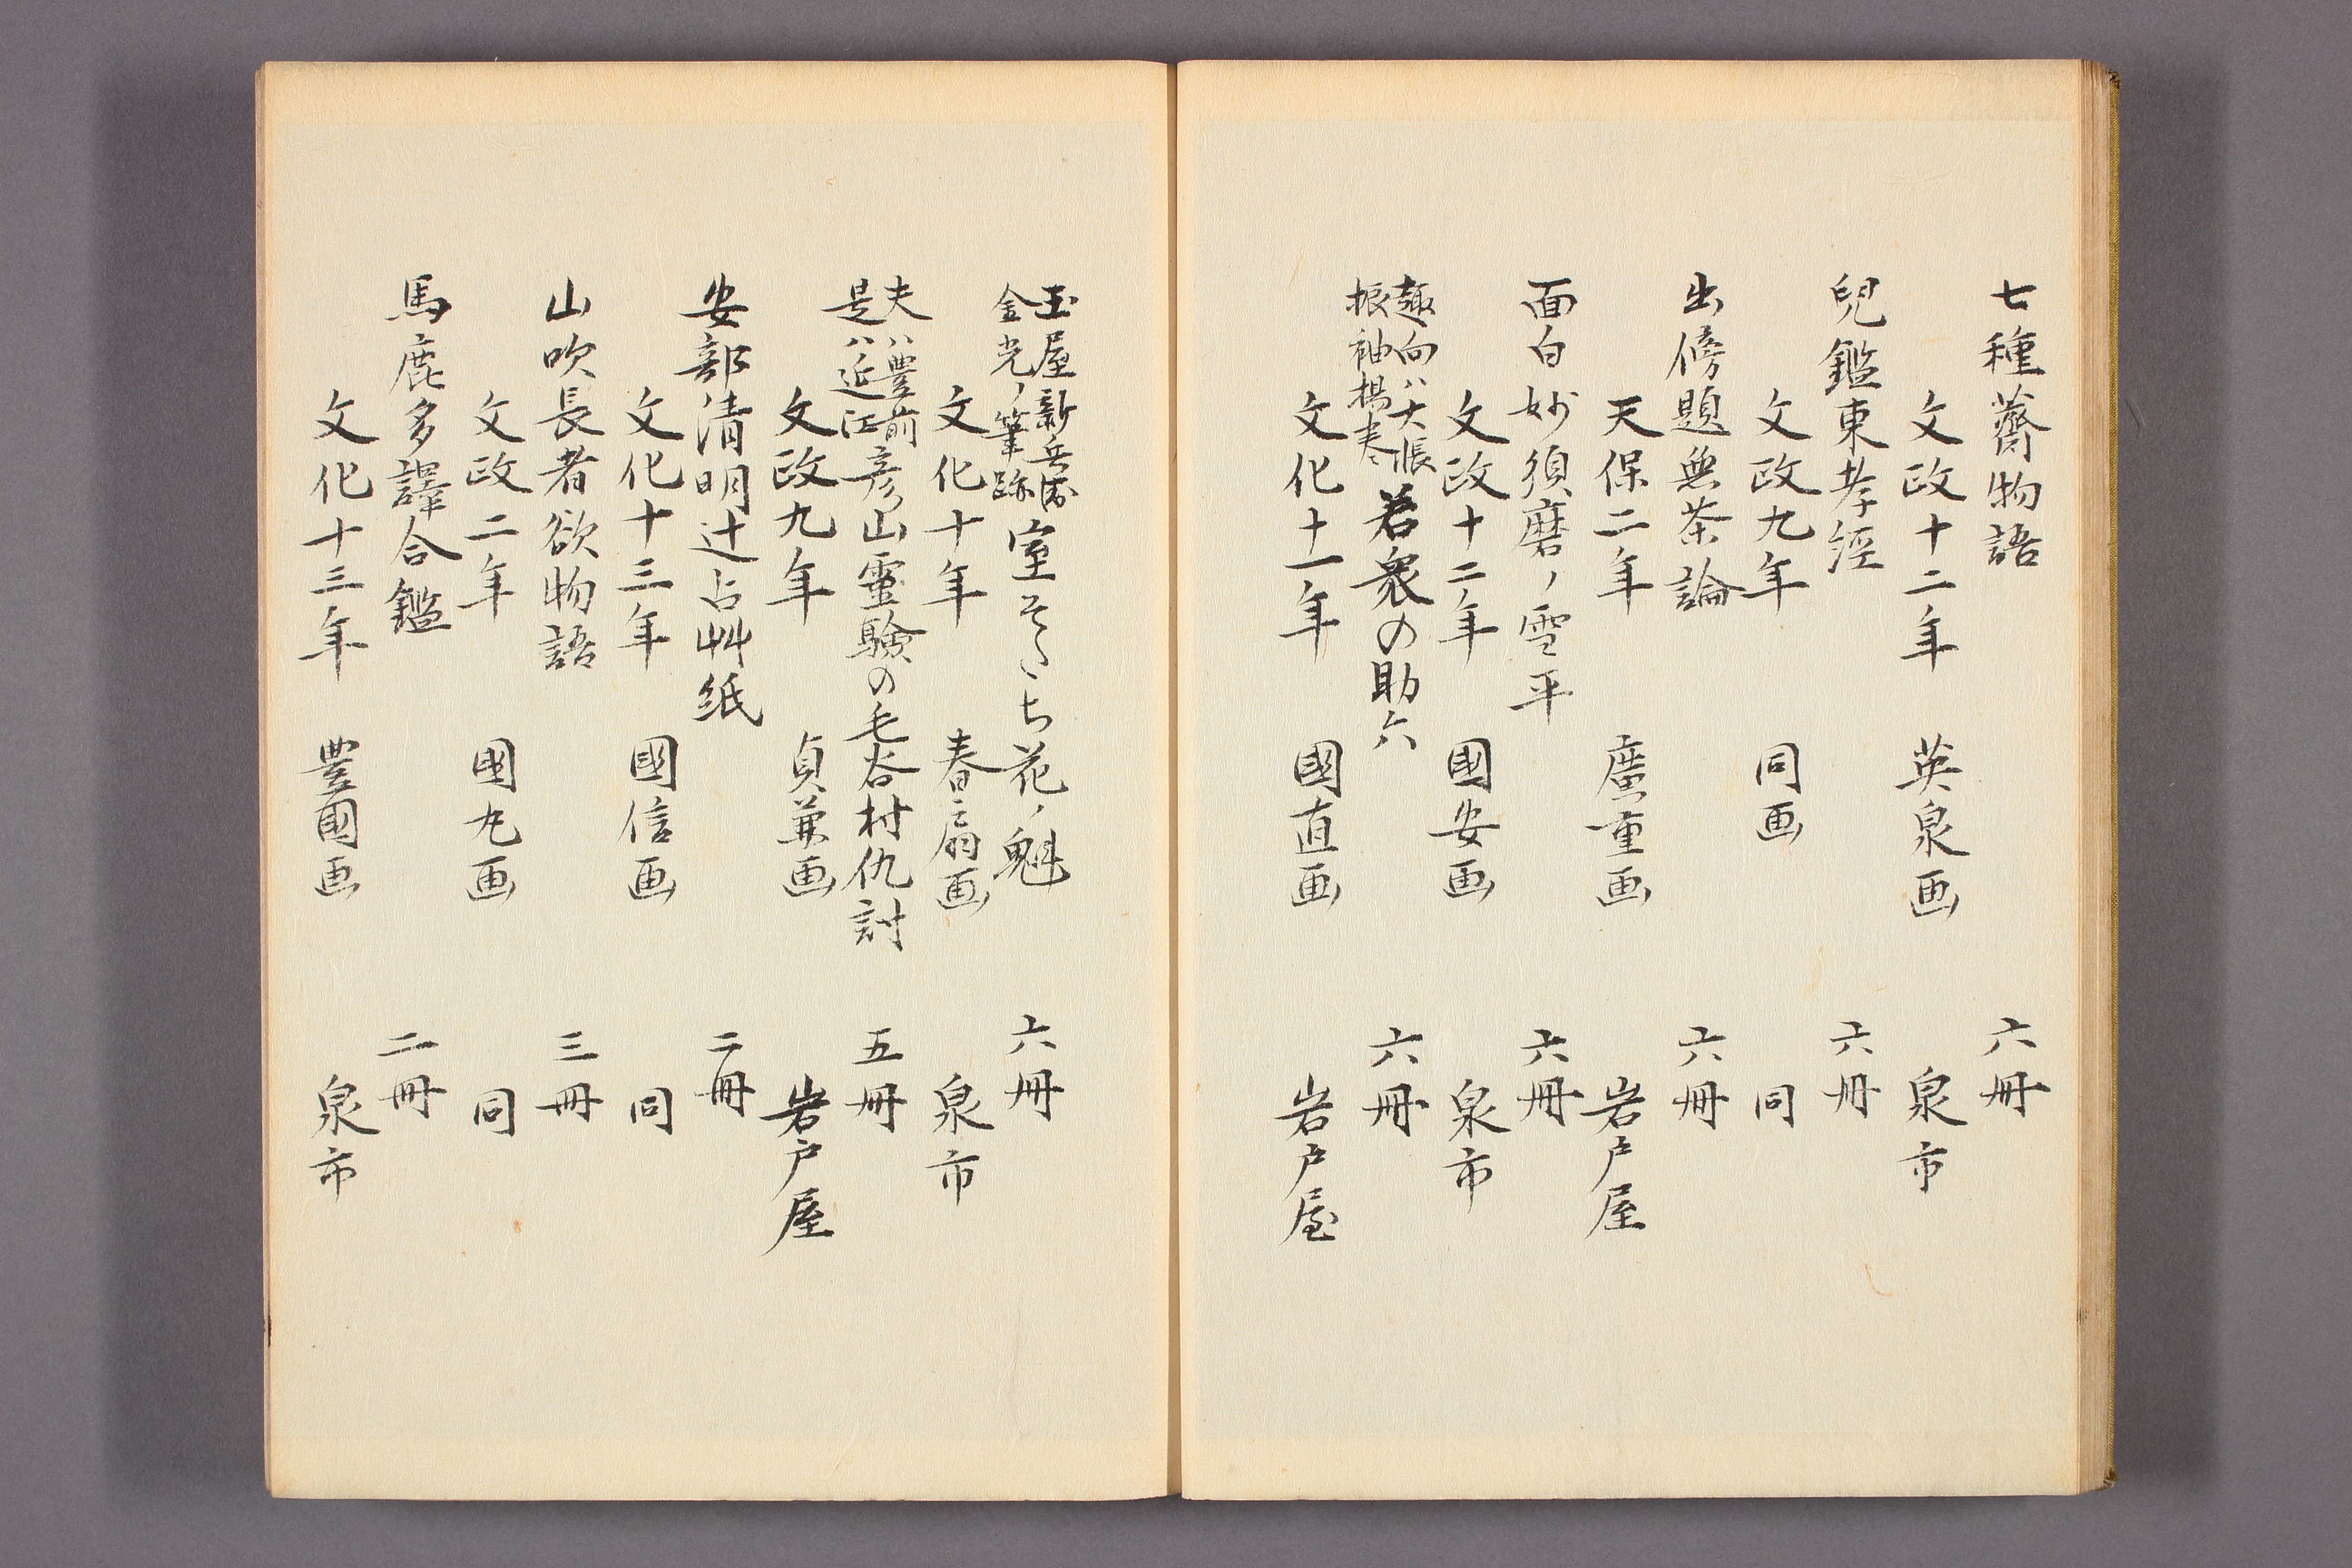 七種薺物語　六冊
文政十二年　英泉画　泉市
兒鑑東孝經　六冊
文政九年　同画　同
出傍題無茶論　六冊
天保二年　廣重画　岩戸屋
面白妙須磨ノ雪平　六冊
文政十二年　國安画　泉市
趣向ハ大帳
振袖揚巻
若衆の助六　六冊
文化十一年　國直画　岩戸屋
玉屋新兵衛
金光ノ筆跡
室そだち花ノ魁　六冊
文化十年　春扇画　泉市
夫ハ豊前
是ハ近江
彦山霊験の毛谷村仇討　五冊
文政九年　貞兼画　岩戸屋
安部清明辻占艸紙　二冊
文化十三年　國信画　同
山吹長者欲物語　三冊
文政二年　國丸画　同
馬鹿多譯合鑑　二冊
文化十三年　豊國画　泉市